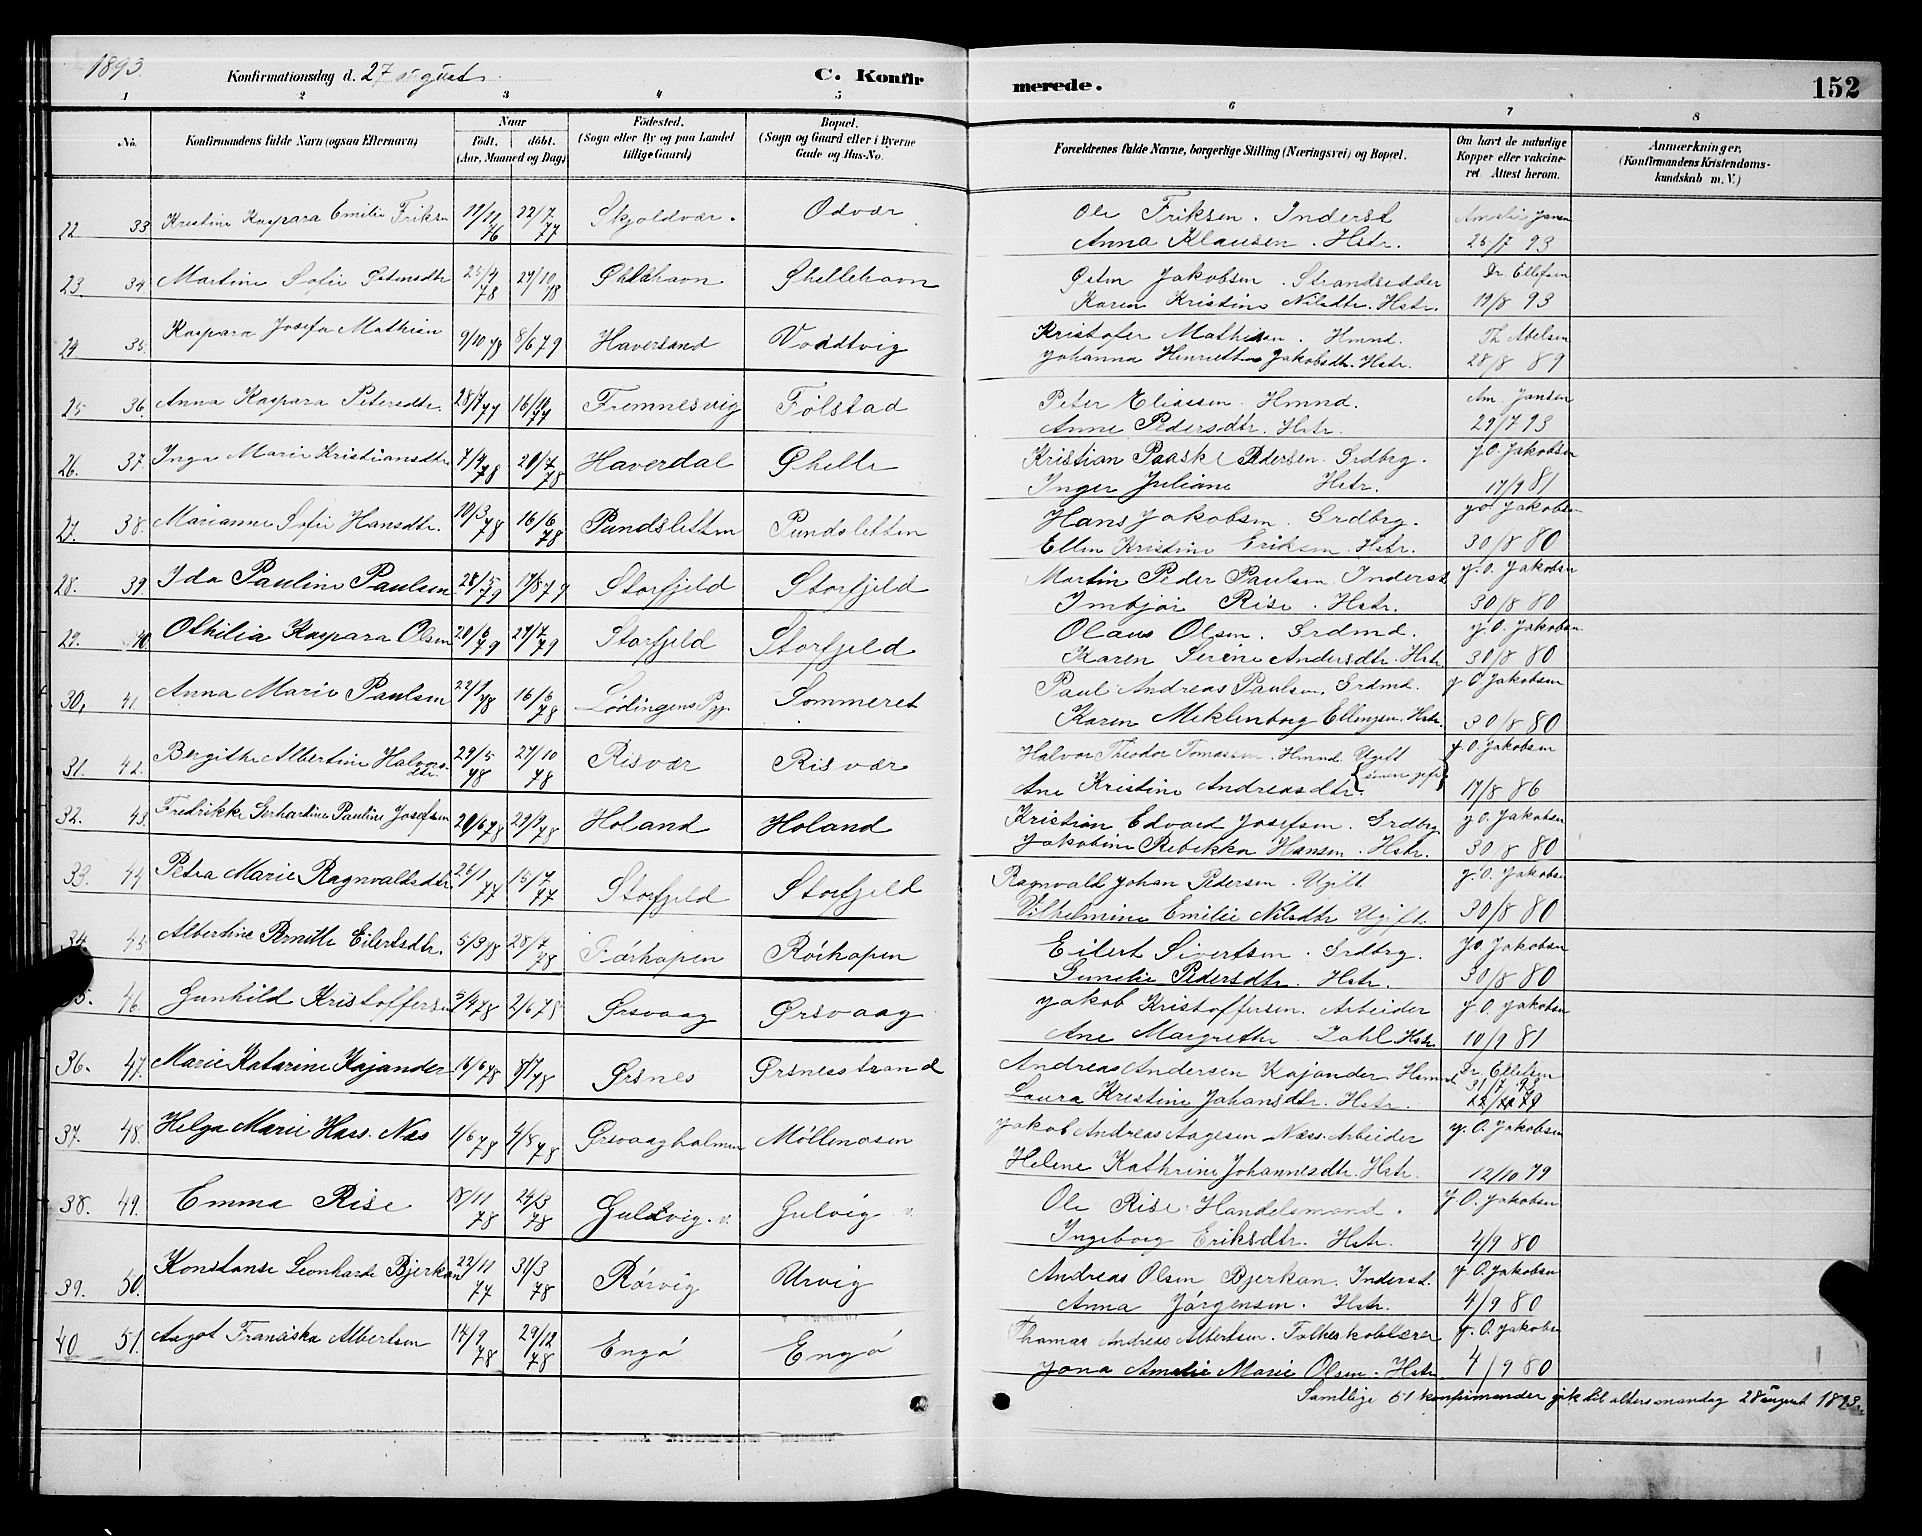 1893. Konfirmationsdag d. 27 august C. Konfirmerede. 152
1 2 3 4 5 6 7 8
No. Konfirmandens fulde Navn (ogsaa Efternavn) Naar Födt. döbt. (Aar, Maaned og Dag) Födested. (Sogn eller By og paa Landet tillige Gaard) Bopæl. (Sogn og Gaard eller i Byerne Gade og Hus-No. Forældrenes fulde Navne, borgerlige Stilling (Næringsvei) og Bopæl. Om havt de naturlige Kopper eller vakcineret. Attest herom. Anmærkninger. (Konfirmandens Kristendomskundskab m. V.)
22 33 Kristine Kaspara Emilie Eriksen 11/11 76 22/7 77 Skjoldvær. Odvær Ole Eriksen. Inderst Amalie Jansen
Anna Klausen. Hstr. 25/7 93
23. 34 Martine Sofie 25/4 78 27/10 78 Skellehavn Jakobsen. Strandsidder Dr. Ellefsen
Karen Kristine Nilsdtr. Hstr. 19/8 93
24 35. Kaspara Josefa Mathisen 9/10 78 8/6 79 Haversand Voddtvig Kristofer Mathisen. Hmnd. Th Abelsen
Johanna Henriette Jakobsdtr. Hstr. 28/8 89
25 36. Anna Kaspara Petersdtr. 28/7 77 16/10 77 Fremnesvig Fölstad Peter Eliassen. Hmnd. Am. Jansen
Anne Pedersdtr. Hstr. 29/7 93
26. 37 Inga Marie Kristiansdtr 7/4 78 20/7 78 Haverdal Kristian Paaske Pedersen. Grdbrg. J.O. Jakobsen
Inger Juliane Hstr. 17/9 81
27. 38. Marianne Sofie Hansdtr. 10/3 78 16/6 78 Pundsletten Pundsletten Hans Jakobsen. Grdbrg. J.O. Jakobsen
Ellen Kristine Eriksen. Hstr. 30/8 80
28. 39. Ida Pauline Paulsen 28/5 79 17/8 79 Storfjeld Storfjeld Martin Peder Paulsen. Inderst J.O. Jakobsen
Imbjør Rise. Hstr. 30/8 80
29. 40. Othilia Kaspara Olsen 20/6 79 27/7 79 Storfjeld Storfjeld Olaus Olsen. Grdmd. J.O. Jakobsen
Karen Serine Andersdtr. Hstr 30/8 80
30, 41 Anna Marie Paulsen 16/6 78 Lödingens Pgj. Sommeret Paul Andreas Paulsen. Grdmd. J.O. Jakobsen
Karen Meklenborg Ellingsen. Hstr. 30/8 80
31. 42. Bergithe Albertine Halvorsdtr. 29/5 78 27/10 78 Risvær Risvær Halvor Theodor Tomassen. Hmnd. Ugift J.O. Jakobsen
Ane Kristine Andreasdtr. 17/8 86
32. 43. Fredrikke Gerhardine Pauline Josefsen 20/6 78 29/9 78 Holand Holand Kristian Edvard Josefsen. Grdbrg J.O. Jakobsen
Jakobine Rebekka Hansen. Hstr. 30/8 80
33. 44 Petra Marie Ragnvaldsdtr. 25/1 77 15/7 77 Storfjeld Storfjeld Ragnvald Johan Pedersen. Ugift J.O. Jakobsen
Vilhelmine Emilie Nilsdtr Ugift. 30/8 80
34. 45. Albertine Pernille Eilertsdtr. 5/3 78 28/7 78 Rörhopen Eilert Sivertsen. Grdbrg. J.O. Jakobsen
Gunelie Pedersdtr. Hstr. 30/8 80
35. 46. Gunhild Kristoffersen 5/4 78 2/6 78 Ørsvaag Ørsvaag Jakob Kristoffersen. Arbeider J.O. Jakobsen
Ane Margrethe Dahl Hstr 10/9 81
36. 47. Marie Katarine Kajander 16/6 78 8/7 78 Ørsnes Ørsnesstrand Andreas Andersen Kajander Hmnd. Dr. Ellefsen
Laura Kristine Johansdtr. Hstr. 31/7 93
37. 48. Helga Marie Hass. Næs 1/6 78 4/8 78 Ørsvaagholmen Möllenosen Jakob Andreas Aagesen Næss. Arbeider J.O. Jakobsen
Helene Kathrine Johannesdtr. Hstr. 12/10 79
38. 49. Emma Rise 18/11 78 24/3 78 Guldvig. v. Gulvig v. Ole Rise. Handelsmand. J.O. Jakobsen
Ingeborg Eriksdtr. Hstr. 4/9 80
39. 50. Konstanse Leonharde Bjerkan 22/11 77 31/3 78 Rörvig Urvig Andreas Olsen Bjerkan. Inderst. J.O. Jakobsen
Anna Jörgensen. Hstr. 4/9 80
40 51. Aagot Fransiska Albertsen 14/9 78 29/12 78 Engö Engö Thomas Andreas Albertsen. Folkeskolelærer J.O. Jakobsen
Jona Amalie Marie Olsen. Hstr 4/9 80
Samtlige 51 konfirmander gik til alters mandag 28 august 1893.